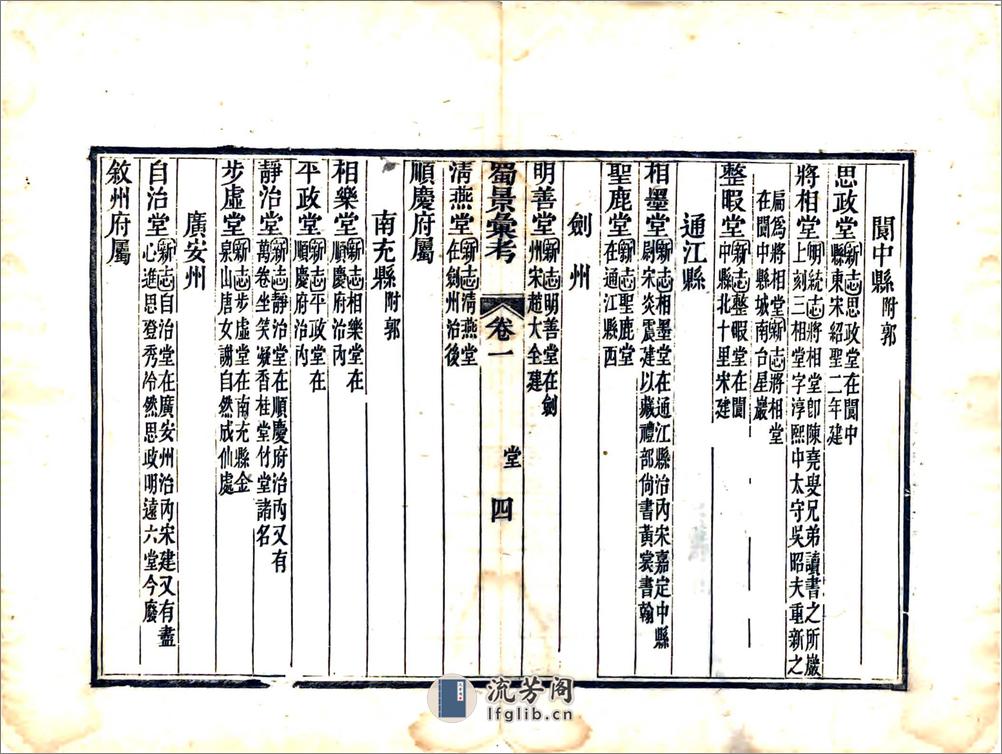 閬中縣附郭
思政堂新志思政堂在閬中
縣東宋紹聖二年建
將相堂明統志將相堂卽陳堯叟兄弟讀書之所巖
上刻三相堂字淳熙中太守吳昭夫重新之
扁爲將相堂新志將相堂
在閬中縣城南台星巖
整暇堂新志整暇堂在閬
中縣北十里宋建
通江縣
相墨堂新志相墨堂在通江縣治內宋嘉定中縣
尉宋炎震建以藏禮部尙書黃裳書翰
聖鹿堂新志聖鹿堂
在通江縣西
劍州
明善堂新志明善堂在劍
州宋趙大全建
蜀景彙考 卷一 堂 四
清燕堂新志清燕堂
在劍州治後
順慶府屬
南充縣附郭
相樂堂新志相樂堂在
順慶府治內
平政堂新志平政堂在
順慶府治內
靜治堂新志靜治堂在順慶府治內又有
萬卷坐笑凝香桂堂竹堂諸名
步虛堂新志步虛堂在南充縣金
泉山唐女謝自然成仙處
廣安州
自治堂新志自治堂在廣安州治內宋建又有盡
心進思登秀冷然思政明遠六堂今廢
敘州府屬
流芳阁
lfglib.cn